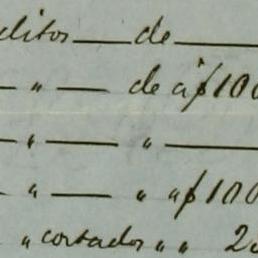 ditos — de —
— " — de a $100
— " — " —
— " — " " $100
" cortados " " 20